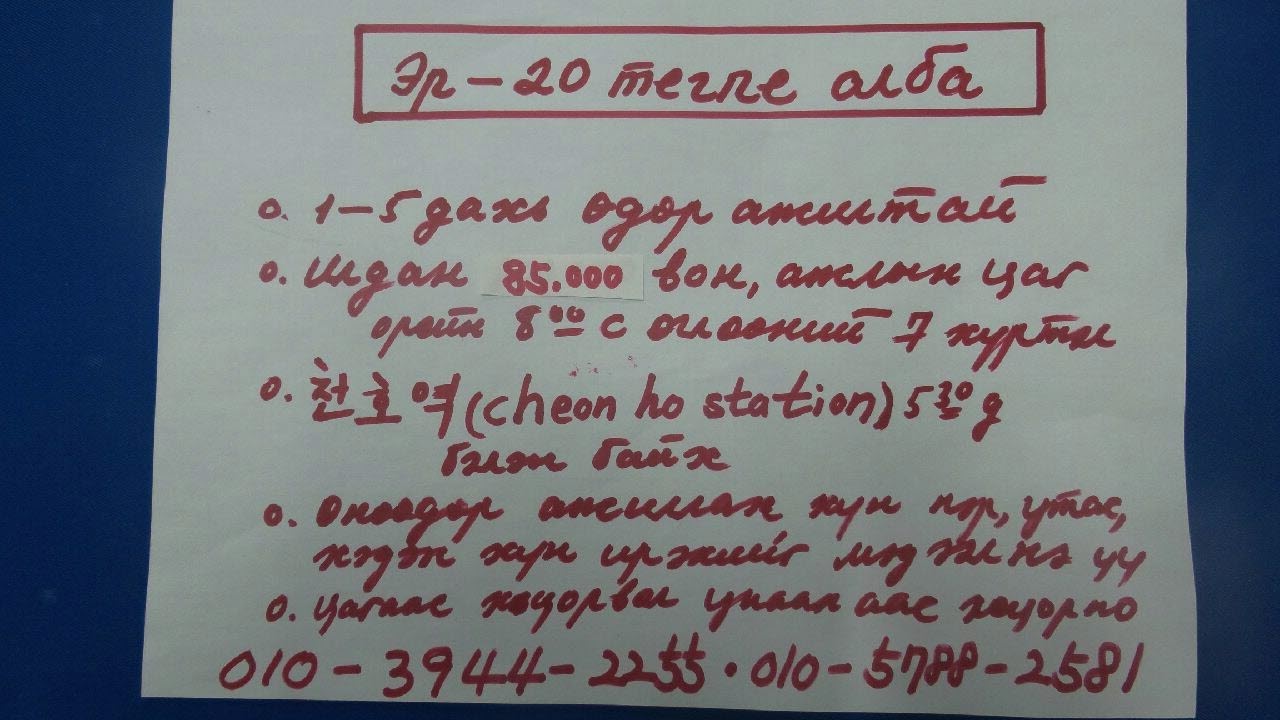 Эр – 20 тегпе алба
о. 1–5 дахь өдөр ажилтай
о. Шдан 85.000 вон, ажлын цаг
оройн 8⁰⁰ с өглөөний 7 хүртэл
о. 천호역 (cheon ho station) 5³⁰ д
бэлэн байх
о. Өнөөдөр ажиллах хүн нэр, утас,
хэдэн хүн ирэхийг мэдэгэнэ үү
о. Цагаас хоцорвол унаанаас хоцорно
010 – 3944 – 2255 · 010 – 5788 – 2581